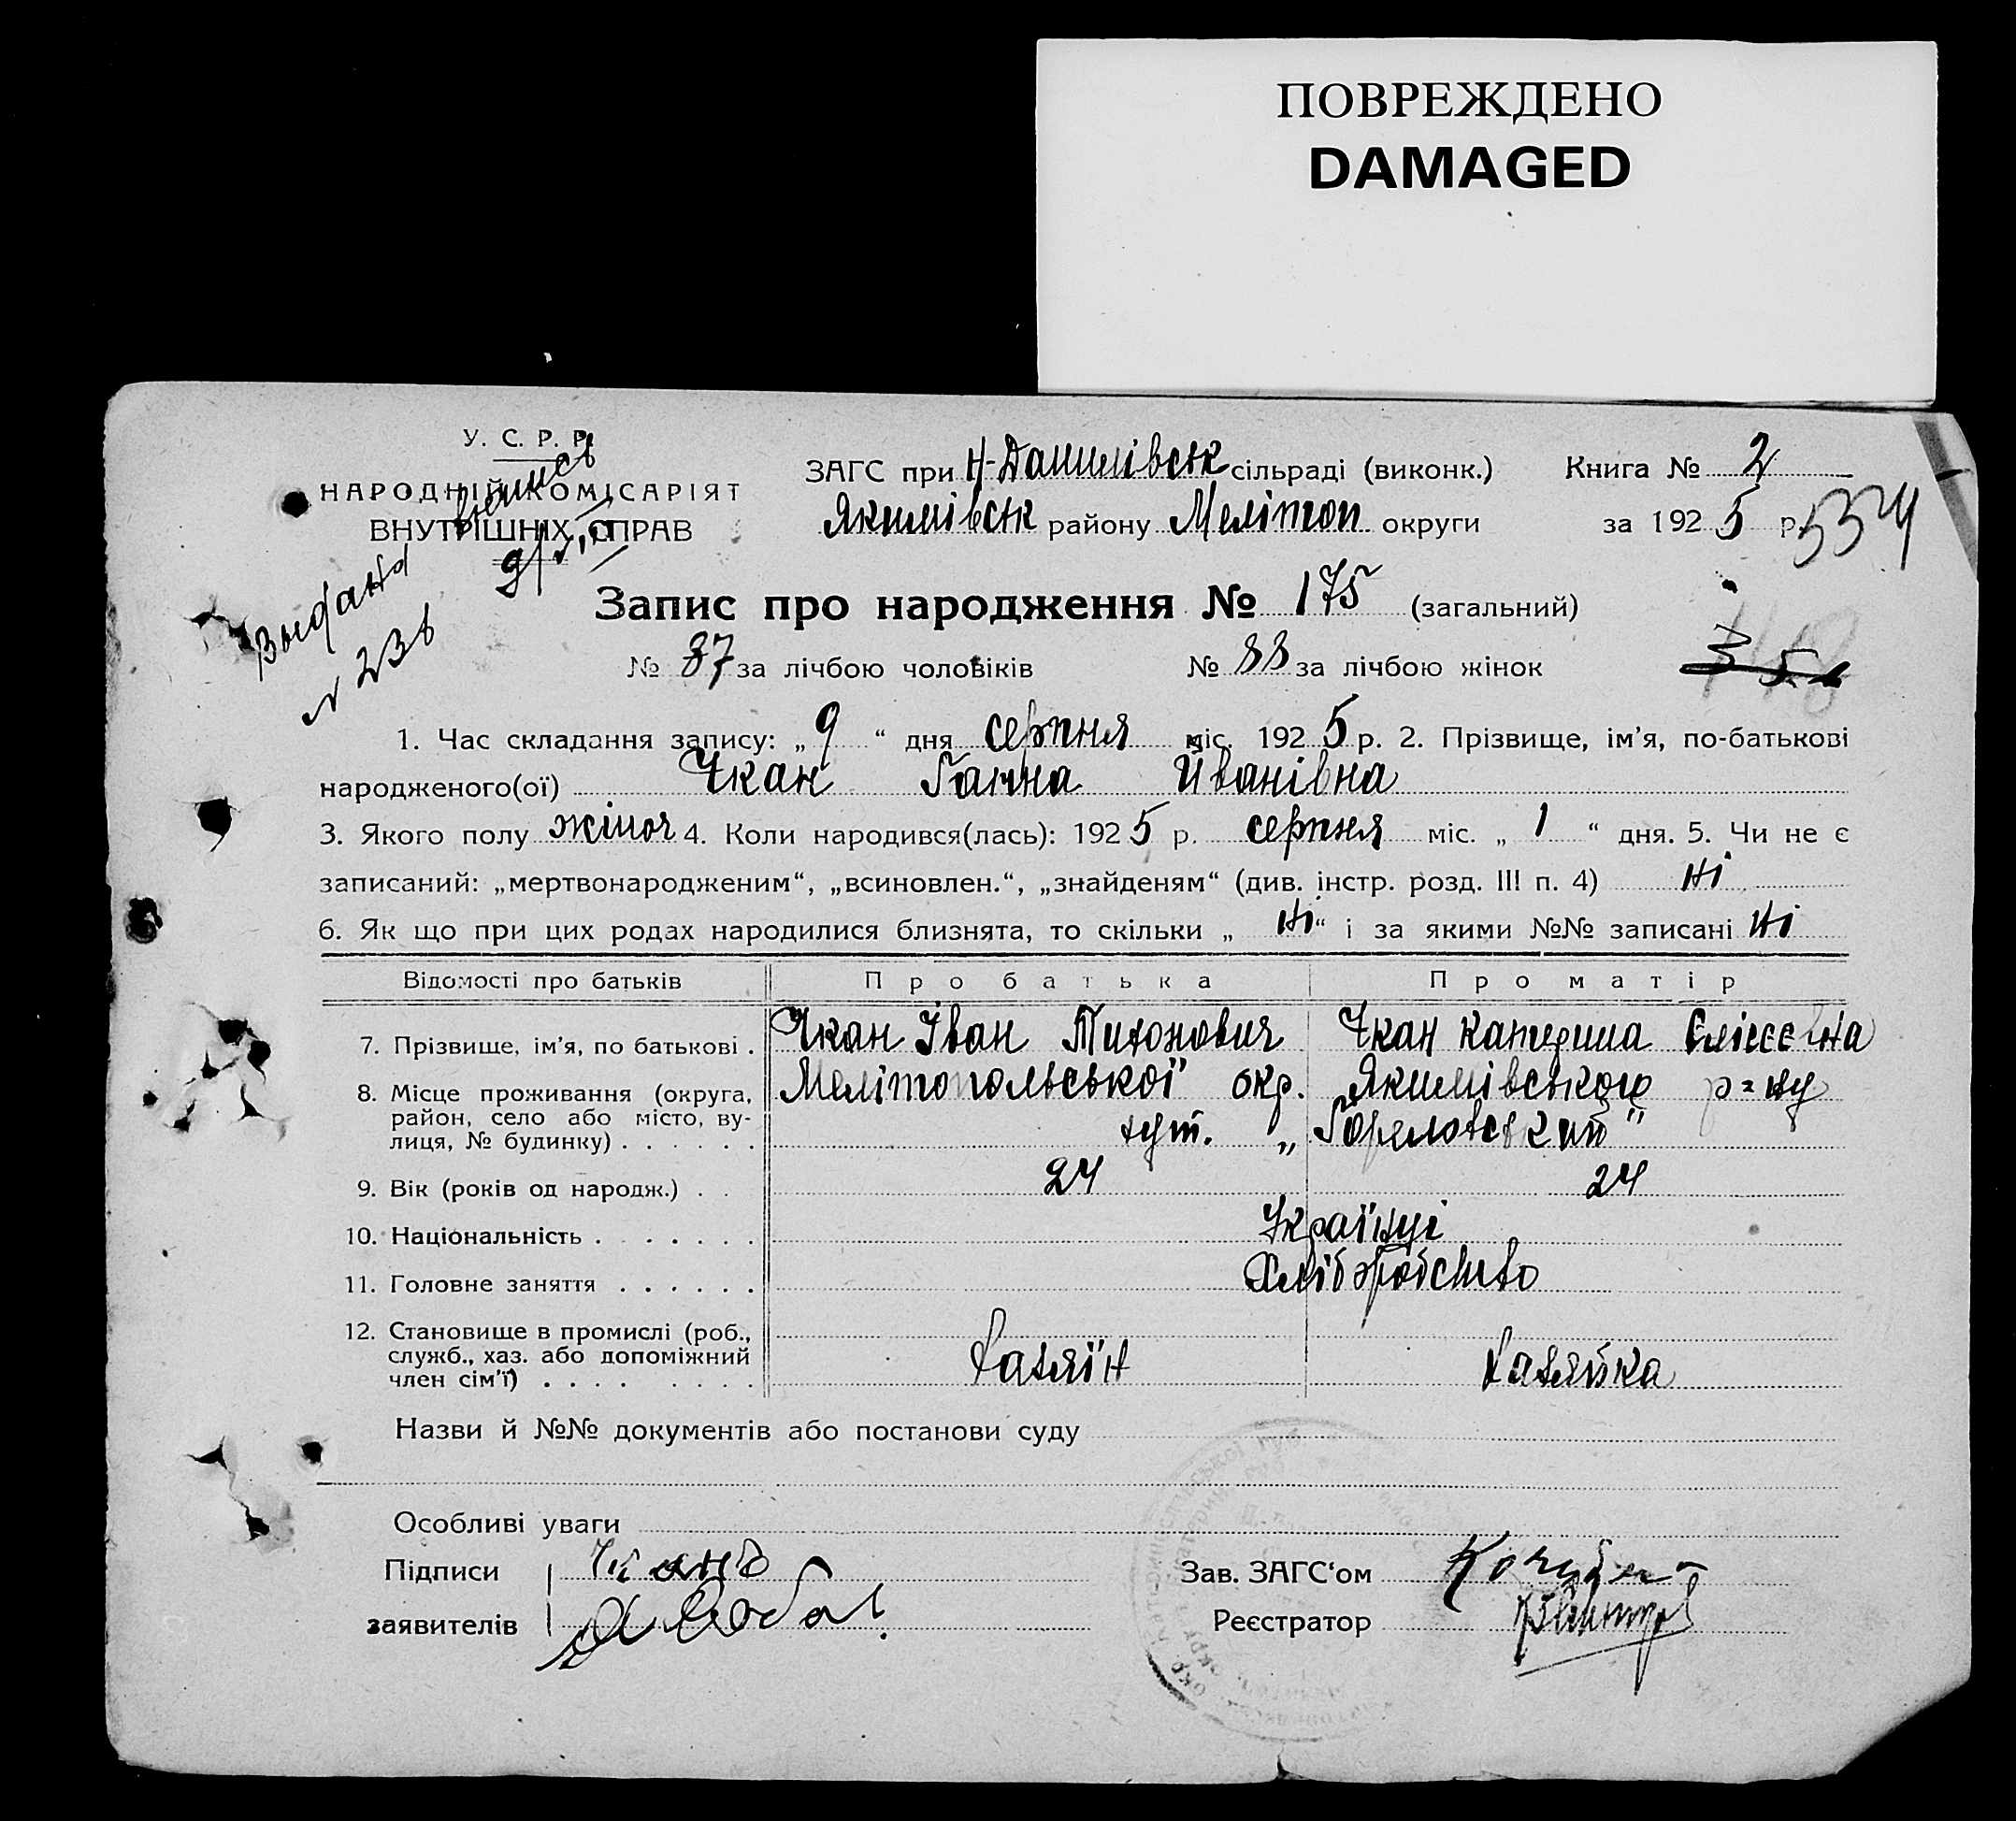 ПОВРЕЖДЕНО
DAMAGED
У. С. Р. Р.
НАРОДНІЙ КОМІСАРІЯТ
ВНУТРІШНІХ СПРАВ
Выдана
№ 236
ЗАГС при Н-Данилівськ сільраді (виконк.) Книга № 2
Якимівськ району Мелітоп округи за 1925 р.
534
Запис про народження № 175 (загальний)
№ 87 за лічбою чоловіків № 88 за лічбою жінок
1. Час складання запису: „9“ дня серпня міс. 1925 р. 2. Прізвище, ім’я, по-батькові
народженого(ої) Чкан Ганна Йванівна
3. Якого полу жіноч 4. Коли народився(лась): 1925 р. серпня міс. „1“ дня. 5. Чи не є
записаний: „мертвонародженим“, „всиновлен.“, „знайденям“ (див. інстр. розд. III п. 4) Ні
6. Як що при цих родах народилися близнята, то скільки „Ні“ і за якими №№ записані Ні
Відомості про батьків Про батька Про матір
7. Прізвище, ім’я, по батькові . Чкан Іван Тихонович Чкан Катерина Єлісєєвна
8. Місце проживання (округа, Мелітопольської окр. Якимівського р=ну
район, село або місто, ву-
лиця, № будинку) . . . . . . хут. „Горяловський“
9. Вік (років од народж.) . . 24 24
10. Національність . . . . . . . Українці
11. Головне заняття . . . . . . Хліборобство
12. Становище в промислі (роб.,
служб., хаз. або допоміжний хазяїн хазяйка
член сім’ї) . . . . . . . . .
Назви й №№ документів або постанови суду
Особливі уваги
Підписи Чканъ Зав. ЗАГС‘ом
заявителів Реєстратор